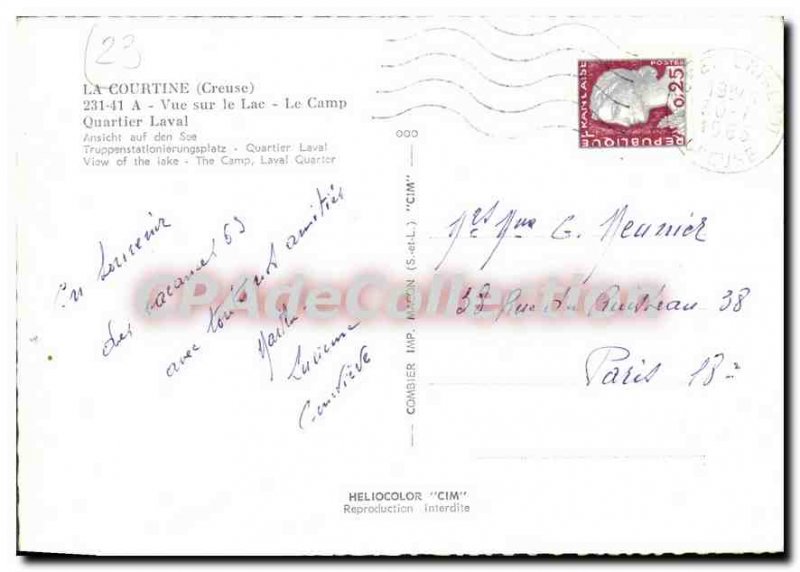 (23
LA COURTINE (Creuse)
231-41 A - Vue sur le Lac - Le Camp
Quartier Laval
Ansicht auf den See
Truppenstationierungsplatz - Quartier Laval
View of the lake - The Camp, Laval Quarter
En souvenir
des vacances 63
avec toutes nos amitiés
Lucienne
Geneviève
COMBIER IMP. MACON (S.-et-L.) "CIM"
POSTES
0,25
REPUBLIQUE FRANÇAISE
G. Meunier
38 Rue du Ruisseau 38
Paris 18e
HELIOCOLOR "CIM"
Reproduction Interdite
CPAdeCollection